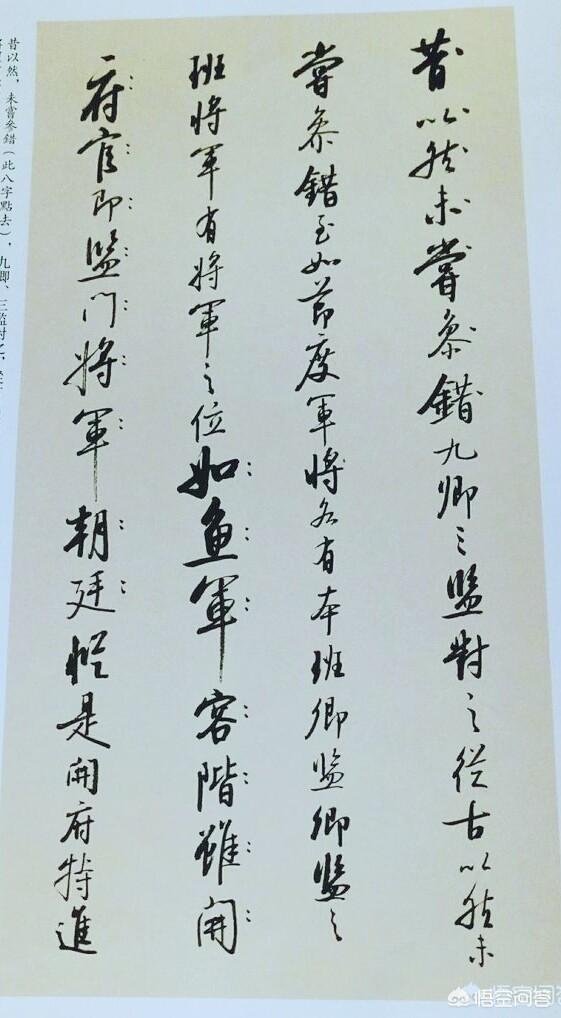 昔以然未嘗參錯九卿三監對之從古以然未
嘗參錯至如節度軍將各有本班卿監卿監之
班將軍有將軍之位如魚軍容階雖開
府官即監門將軍朝廷縱是開府特進
昔以然，未嘗參錯（此八字點去），九卿、三監對之，
悟空问答